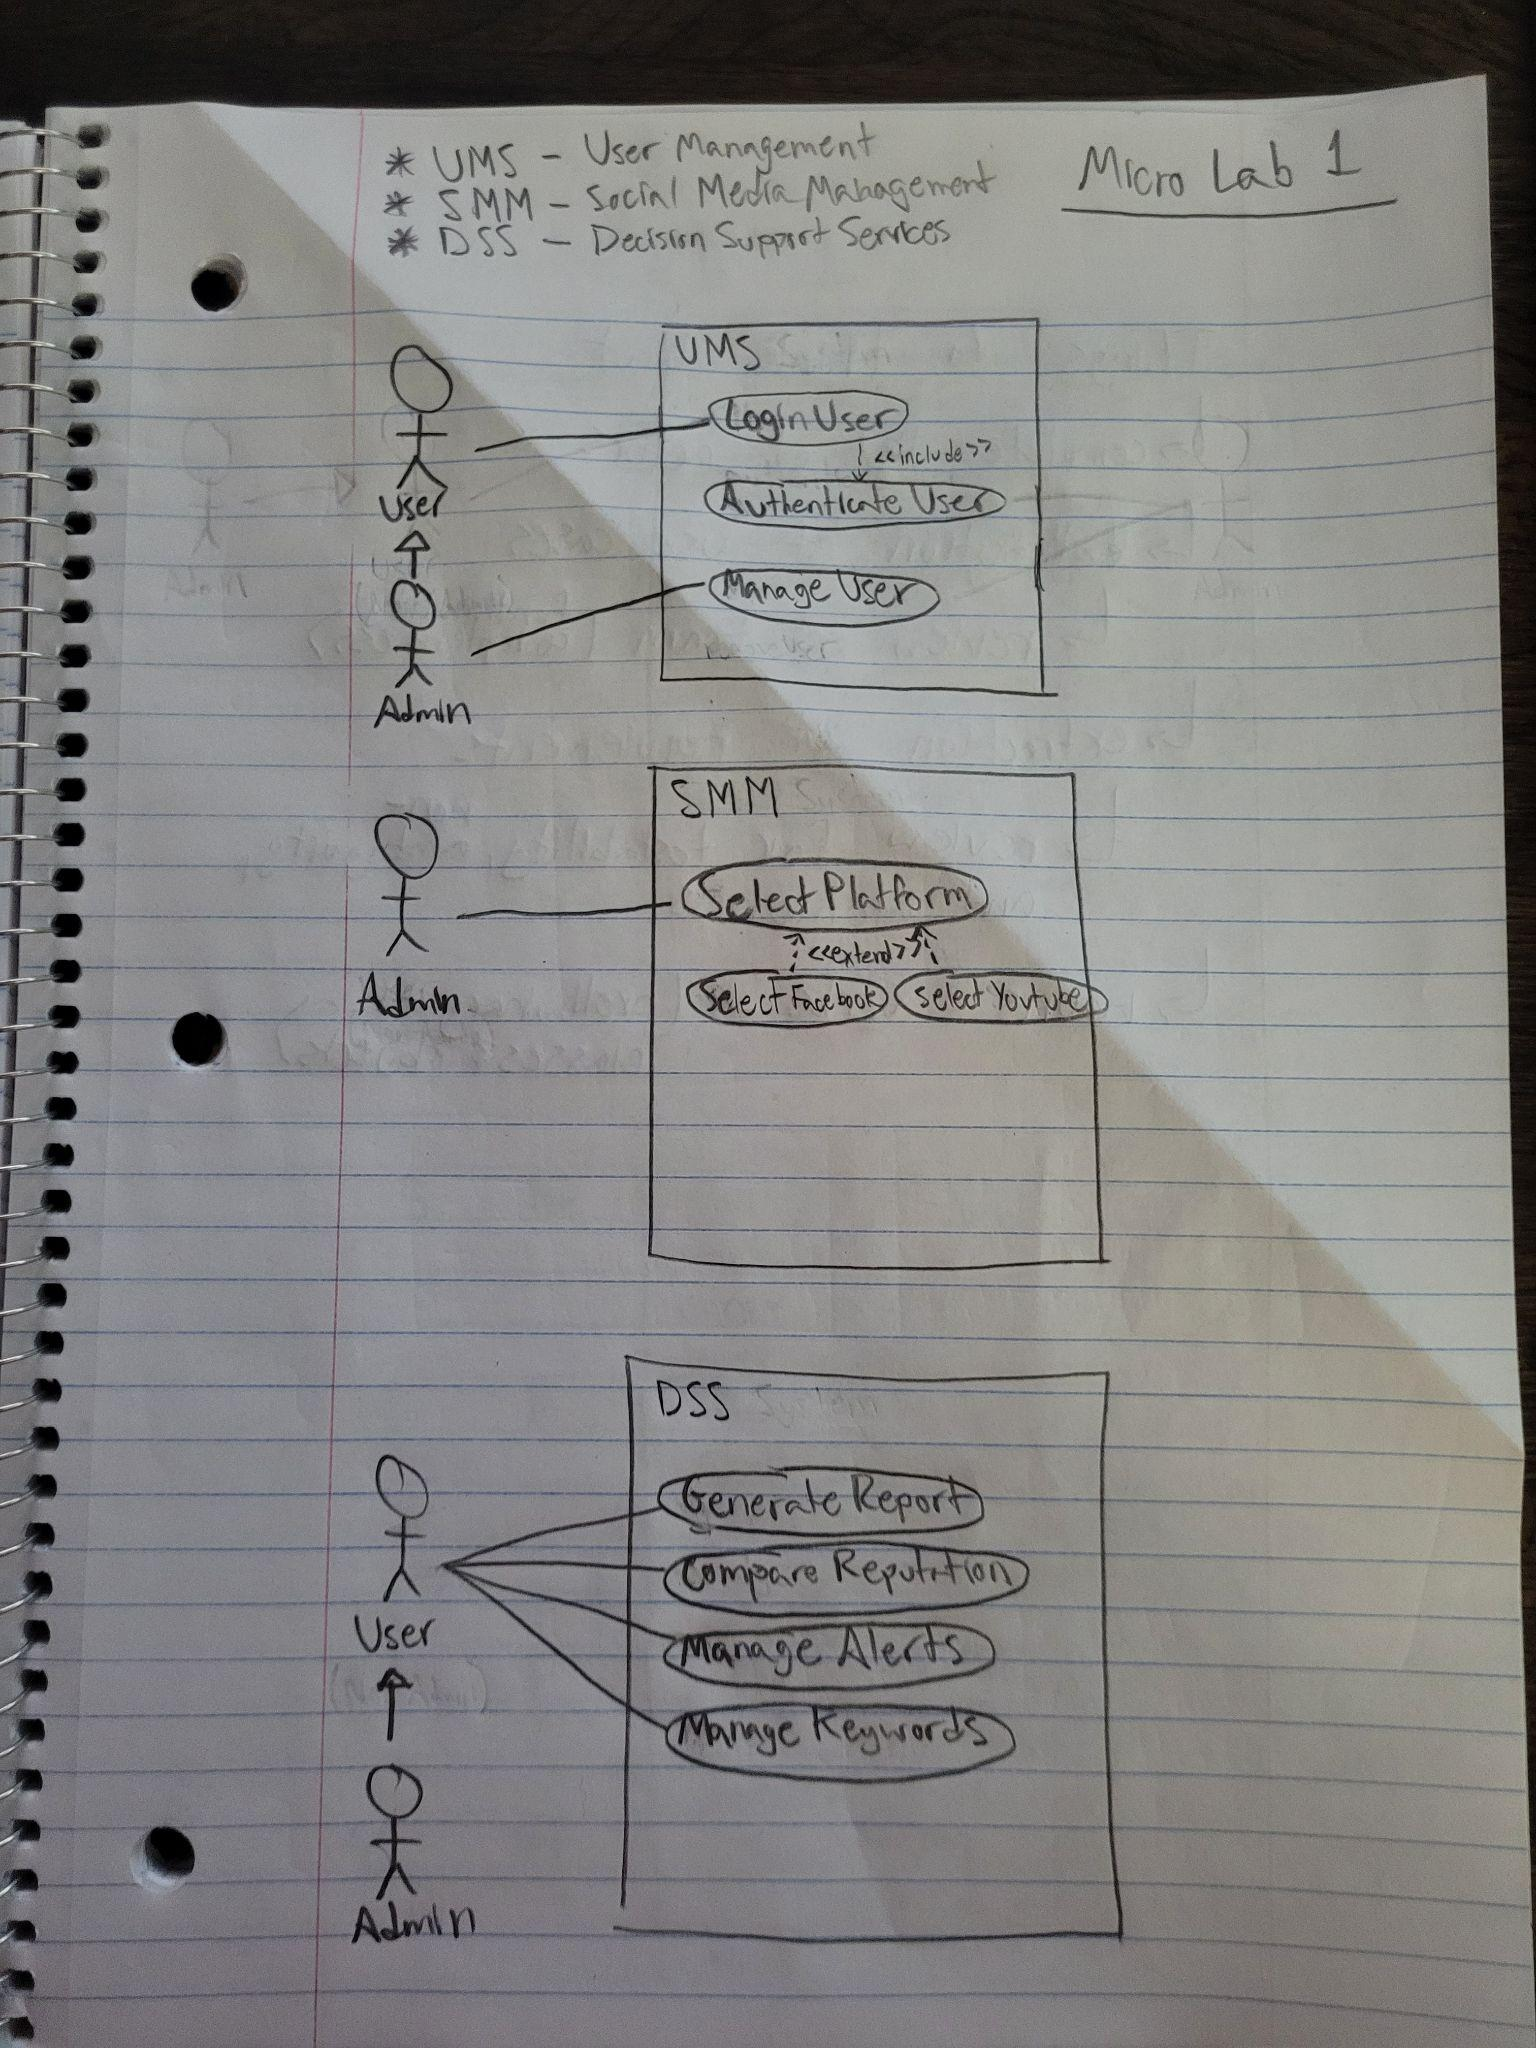 * UMS - User Management
* SMM - Social Media Management
* DSS - Decision Support Services
Micro Lab 1
UMS
Login User
<<include>>
Authenticate User
Manage User
User
Admin
SMM
Select Platform
<<extend>>
Select Facebook
Select Youtube
Admin
DSS
Generate Report
Compare Reputation
Manage Alerts
Manage Keywords
User
Admin